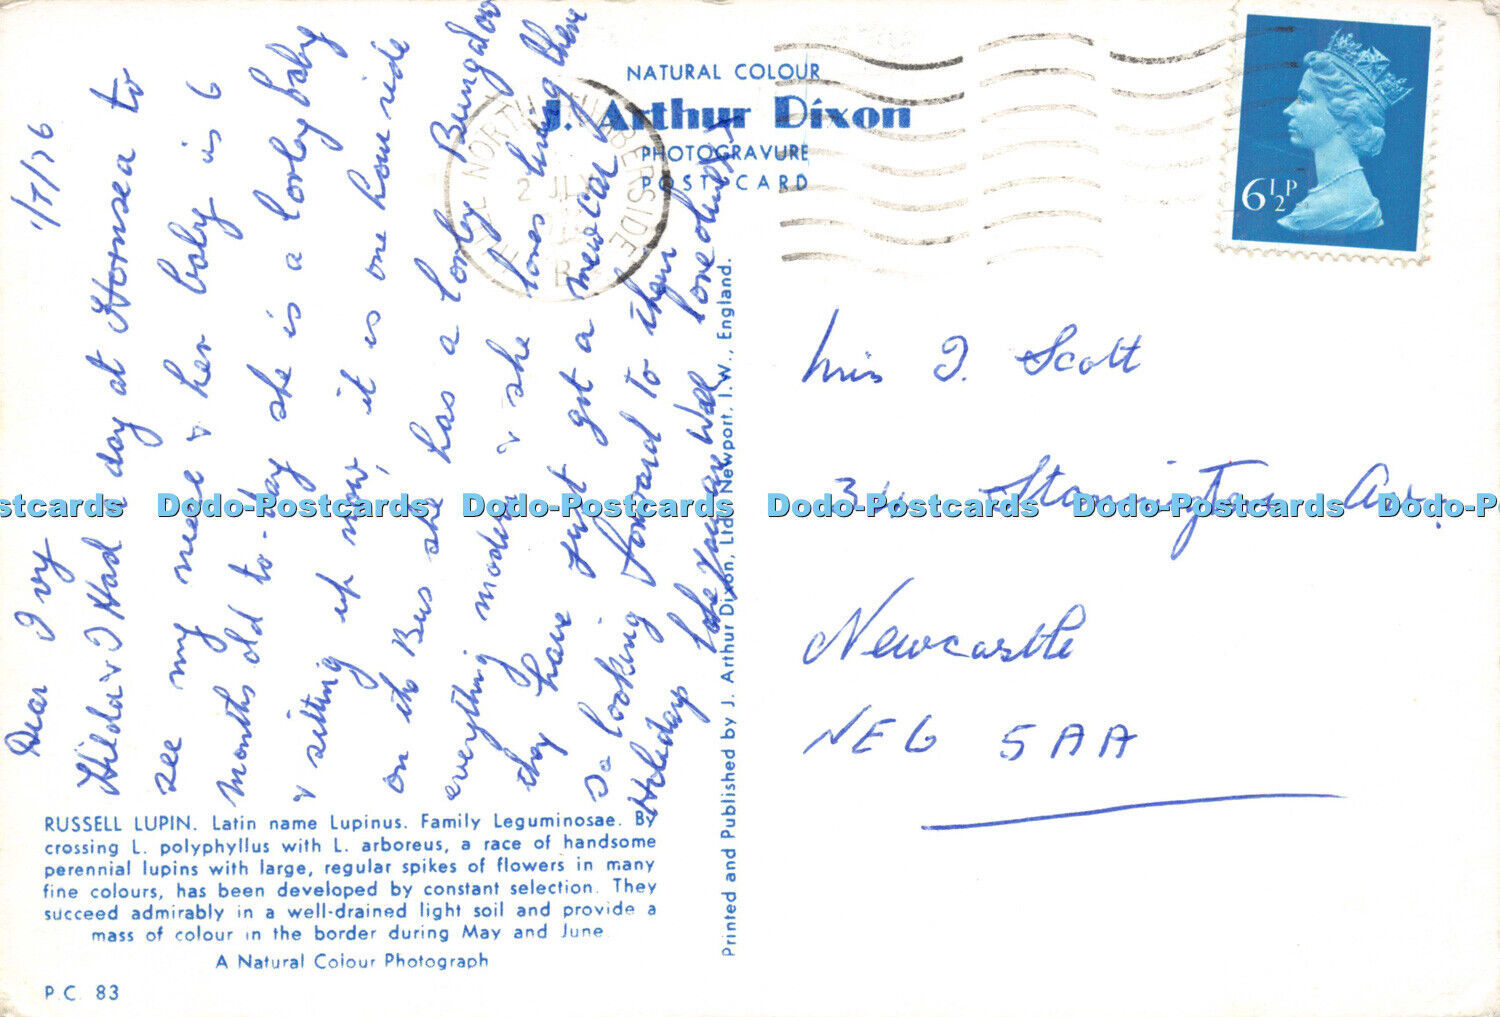 1/7/76
Dear Ivy
Hilda & I Had a day at Hornsea to
see my niece & her baby is 6
months old to-day she is a lovley baby
& sitting up now, it is one hour ride
on the Bus she has a lovley Bungalow
everything modern & she loves living there
they have just got a new car
so looking forward to their
Holidays Hope you are Well love
RUSSELL LUPIN. Latin name Lupinus. Family Leguminosae. By
crossing L. polyphyllus with L. arboreus, a race of handsome
perennial lupins with large, regular spikes of flowers in many
fine colours, has been developed by constant selection. They
succeed admirably in a well-drained light soil and provide a
mass of colour in the border during May and June
A Natural Colour Photograph
P.C. 83
NATURAL COLOUR
J. Arthur Dixon
PHOTOGRAVURE
POST CARD
NORTH HUMBERSIDE
2 JLY
Printed and Published by J. Arthur Dixon, Ltd., Newport, I.W., England.
6½P
Miss I. Scott
34 Stannington Ave.
Newcastle
NE6 5AA
Dodo-Postcards Dodo-Postcards Dodo-Postcards Dodo-Postcards Dodo-Postcards